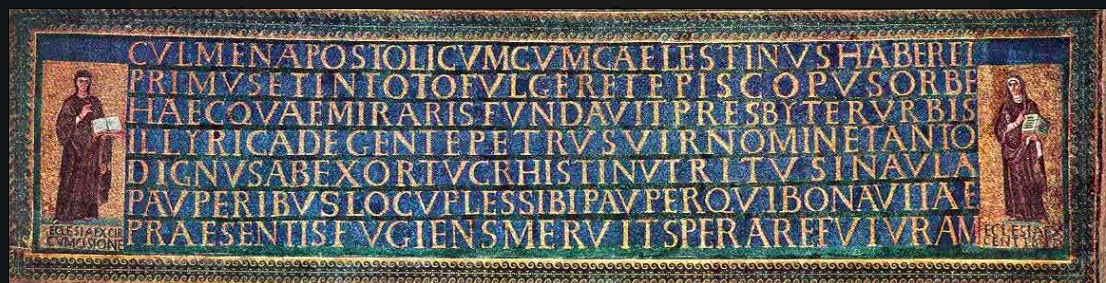 CVLMENAPOSTOLICVMCVMCAELESTINVSHABERET
PRIMVSETINTOTOFVLGERETEPISCOPVSORBE
HAECQVAEMIRARISFVNDAVITPRESBYTERVRBIS
ILLYRICADEGENTEPETRVSVIRNOMINETANTO
DIGNVSABEXORTVCRHISTINVTRITVSINAVLA
PAVPERIBVSLOCVPLESSIBIPAVPERQVIBONAVITAE
PRAESENTISFVGIENSMERVITSPERAREFVTVRAM
ECLESIAEXCIR
CVMCISIONE
ECLESIAEX